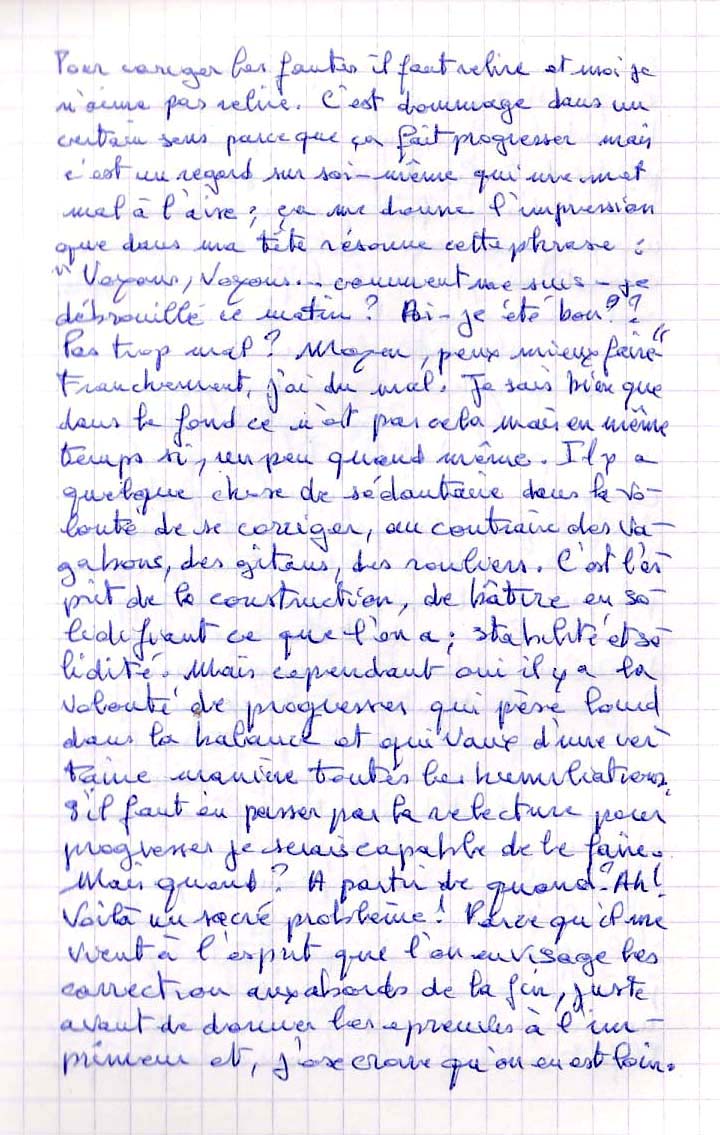 Pour coriger les fautes il faut relire et moi je
n'aime pas relire. C'est dommage dans un
certain sens parce que ça fait progresser mais
c'est un regard sur soi-même qui me met
mal à l'aise ; ça me donne l'impression
que dans ma tête résonne cette phrase :
" Voyons, voyons... comment me suis-je
débrouillé ce matin ? Ai-je été bon ??
Pas trop mal ? Moyen, peux mieux faire "
Franchement, j'ai du mal. Je sais bien que
dans le fond ce n'est pas cela mais en même
temps si, un peu quand même. Il y a
quelque chose de sédantaire dans la vo-
lonté de se corriger, au contraire des va-
gabons, des gitans, des rouliers. C'est l'es
prit de la construction, de bâtire en so-
lidifiant ce que l'on a ; stabilité et so
lidité. Mais cependant oui il y a la
volonté de progresser qui pèse lourd
dans la balance et qui vaux d'une cer
taine manière toutes les humiliations.
S'il faut en passer par la relecture pour
progresser je serais capable de le faire.
Mais quand ? A partir de quand ? Ah !
Voilà un sacré problème ! Parce qu'il me
vient à l'esprit que l'on envisage les
correction aux abords de la fin, juste
avant de donner les épreuves à l'im-
primeur et, j'ose croire qu'on en est loin.